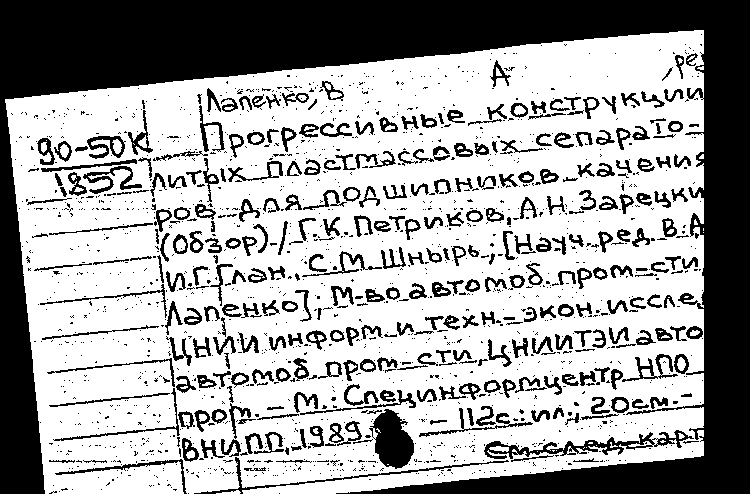 Лапенко, В А , ред
90-50К Прогрессивные конструкции
1852 литых пластмассовых сепарато-
ров для подшипников качения
(Обзор) / Г.К. Петриков, А.Н. Зарецки
И.Г. Глан., С.М. Шнырь ; [Науч. ред. В.А
Лапенко] ; М-во автомоб. пром-сти,
ЦНИИ информ. и техн.-экон. исслед
автомоб. пром-сти, ЦНИИТЭИавто
пром. - М. : Специнформцентр НПО
ВНИПП, 1989. - 112с. : ил. ; 20см. -
См. след. карт